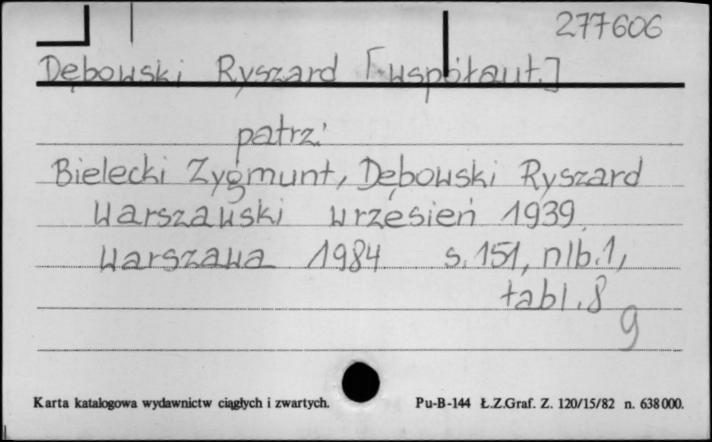 277606
Dębowski Ryszard [współaut.]
patrz:
Bielecki Zygmunt, Dębowski Ryszard
Warszawski wrzesień 1939
Warszawa 1984 s. 151, nlb. 1,
tabl. 8
g
Karta katalogowa wydawnictw ciągłych i zwartych. Pu-B-144 Ł.Z.Graf. Z. 120/15/82 n. 638 000.